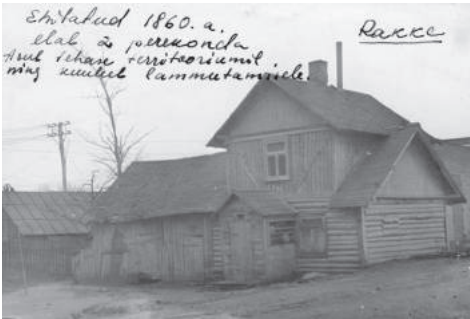 Ehitatud 1860. a.
Rakke
elab 2 perekonda
Asub tehase territooriumil
ning kuulub lammutamisele.